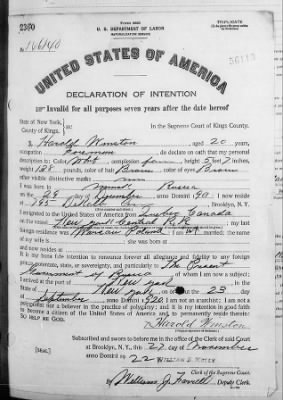 2300
Form 2203
TRIPLICATE
U. S. DEPARTMENT OF LABOR
NATURALIZATION SERVICE
No. 146140
UNITED STATES OF AMERICA
DECLARATION OF INTENTION
Invalid for all purposes seven years after the date hereof
State of New York,
County of Kings,
ss:
In the Supreme Court of Kings County.
I, Harold Winston, aged 20 years,
occupation Foreman, do declare on oath that my personal
description is: Color White, complexion, height 5 feet 7 inches,
weight 138 pounds, color of hair Brown, color of eyes Brown
other visible distinctive marks
I was born in Russia
on the 29 day of, anno Domini 190; I now reside
at 195, Brooklyn, N. Y.
I emigrated to the United States of America from Canada
on the vessel New York Central R.R.; my last
foreign residence was Warsaw Poland; I am married; the name
of my wife is; she was born at
and now resides at
It is my bona fide intention to renounce forever all allegiance and fidelity to any foreign
prince, potentate, state, or sovereignty, and particularly to The Present
Government of Russia, of whom I am now a subject;
I arrived at the port of New York, in the
State of New York, on or about the 23 day
of September, anno Domini 1920; I am not an anarchist; I am not a
polygamist nor a believer in the practice of polygamy; and it is my intention in good faith
to become a citizen of the United States of America and to permanently reside therein:
SO HELP ME GOD.
Harold Winston
Subscribed and sworn to before me in the office of the Clerk of said Court
at Brooklyn, N. Y., this 27 day of November
anno Domini 19 22
[SEAL]
Clerk of the Supreme Court.
By William J., Deputy Clerk.